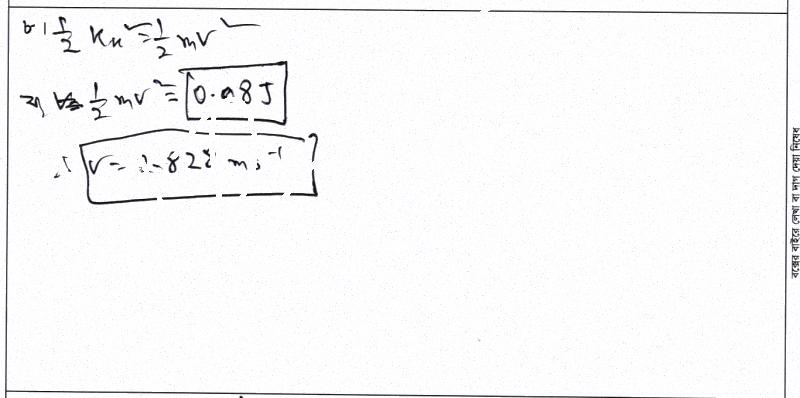 ৮। ½ Kx² = ½ mv²
বা, ½ mv² = 0.98J
∴ v = 2.828 ms⁻¹
বক্সের বাইরে লেখা বা দাগ দেয়া নিষেধ